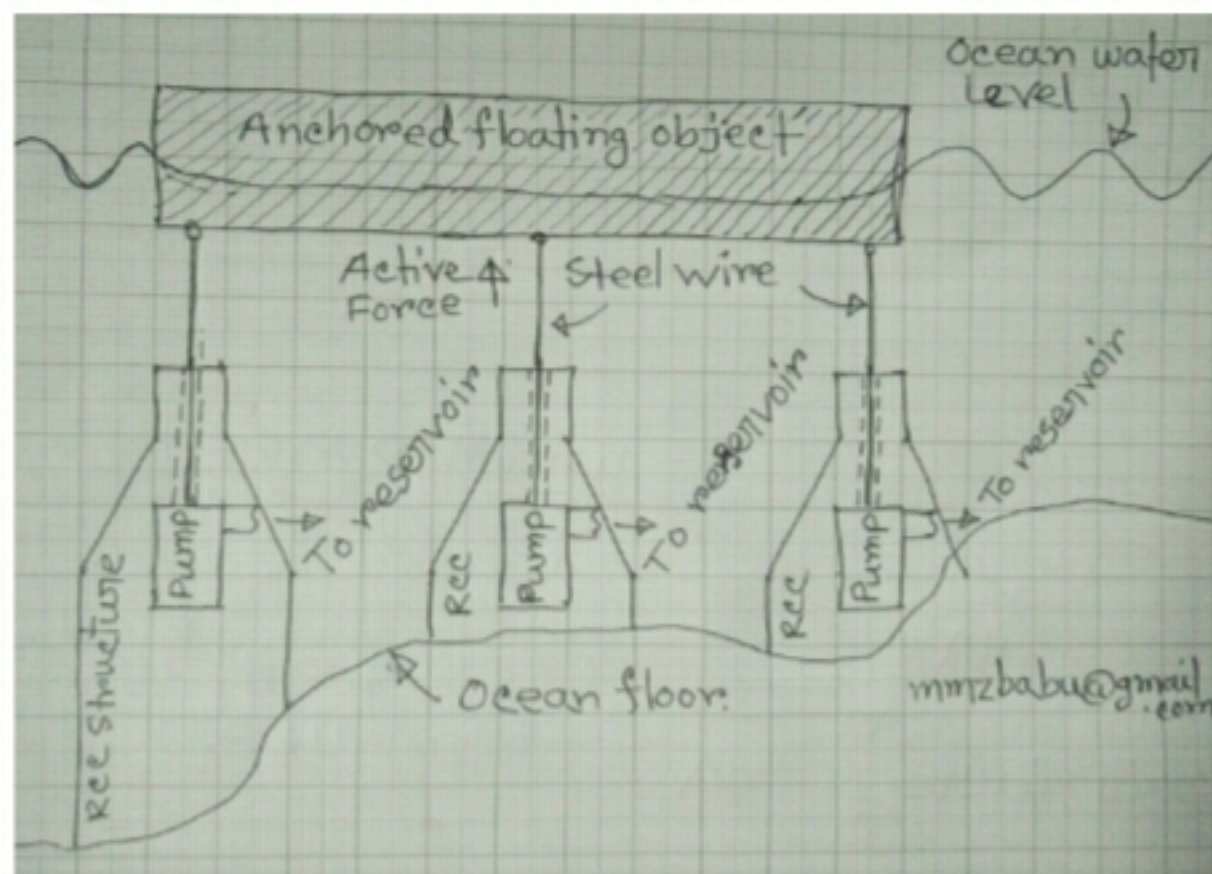 Ocean water
Level
Anchored floating object
Active
Force
Steel wire
To reservoir
To reservoir
To reservoir
Pump
Pump
Pump
RCC Structure
RCC
RCC
Ocean floor.
mmzbabu@gmail
.com